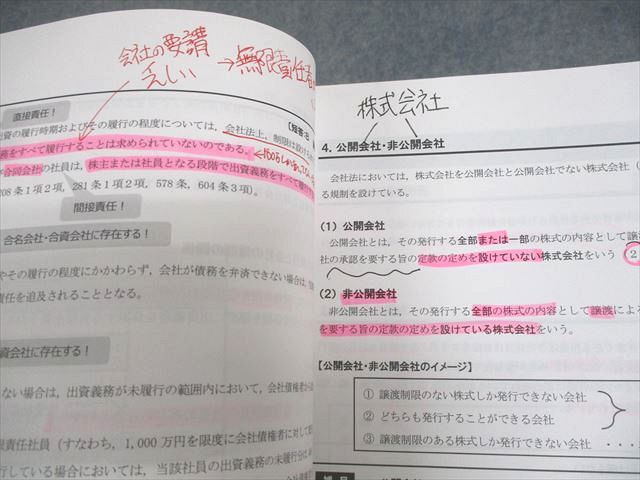 会社の要請
乏しい →無限責任者
直接責任！
出資の履行時期およびその履行の程度については，会社法上，制限は設け
務をすべて履行することは求められていないのである。
合同会社の社員は，株主または社員となる段階で出資義務をすべて履行
208条1項2項，281条1項2項，578条，604条3項）。
間接責任！
合名会社・合資会社に存在する！
やその履行の程度にかかわらず，会社が債務を弁済できない場合は，
責任を追及されることとなる。
資会社に存在する！
ない場合は，出資義務が未履行の範囲内において，会社債権者から
限責任社員（すなわち，1,000万円を限度に会社債権者に対して
行している場合においては，当該社員の出資義務の未履行分は
株式会社
4. 公開会社・非公開会社
会社法においては，株式会社を公開会社と公開会社でない株式会社（
る規制を設けている。
（1）公開会社
公開会社とは，その発行する全部または一部の株式の内容として譲渡
社の承認を要する旨の定款の定めを設けていない株式会社をいう（2
（2）非公開会社
非公開会社とは，その発行する全部の株式の内容として譲渡によ
を要する旨の定款の定めを設けている株式会社をいう。
【公開会社・非公開会社のイメージ】
① 譲渡制限のない株式しか発行できない会社
② どちらも発行することができる会社
③ 譲渡制限のある株式しか発行できない会社 ・・・